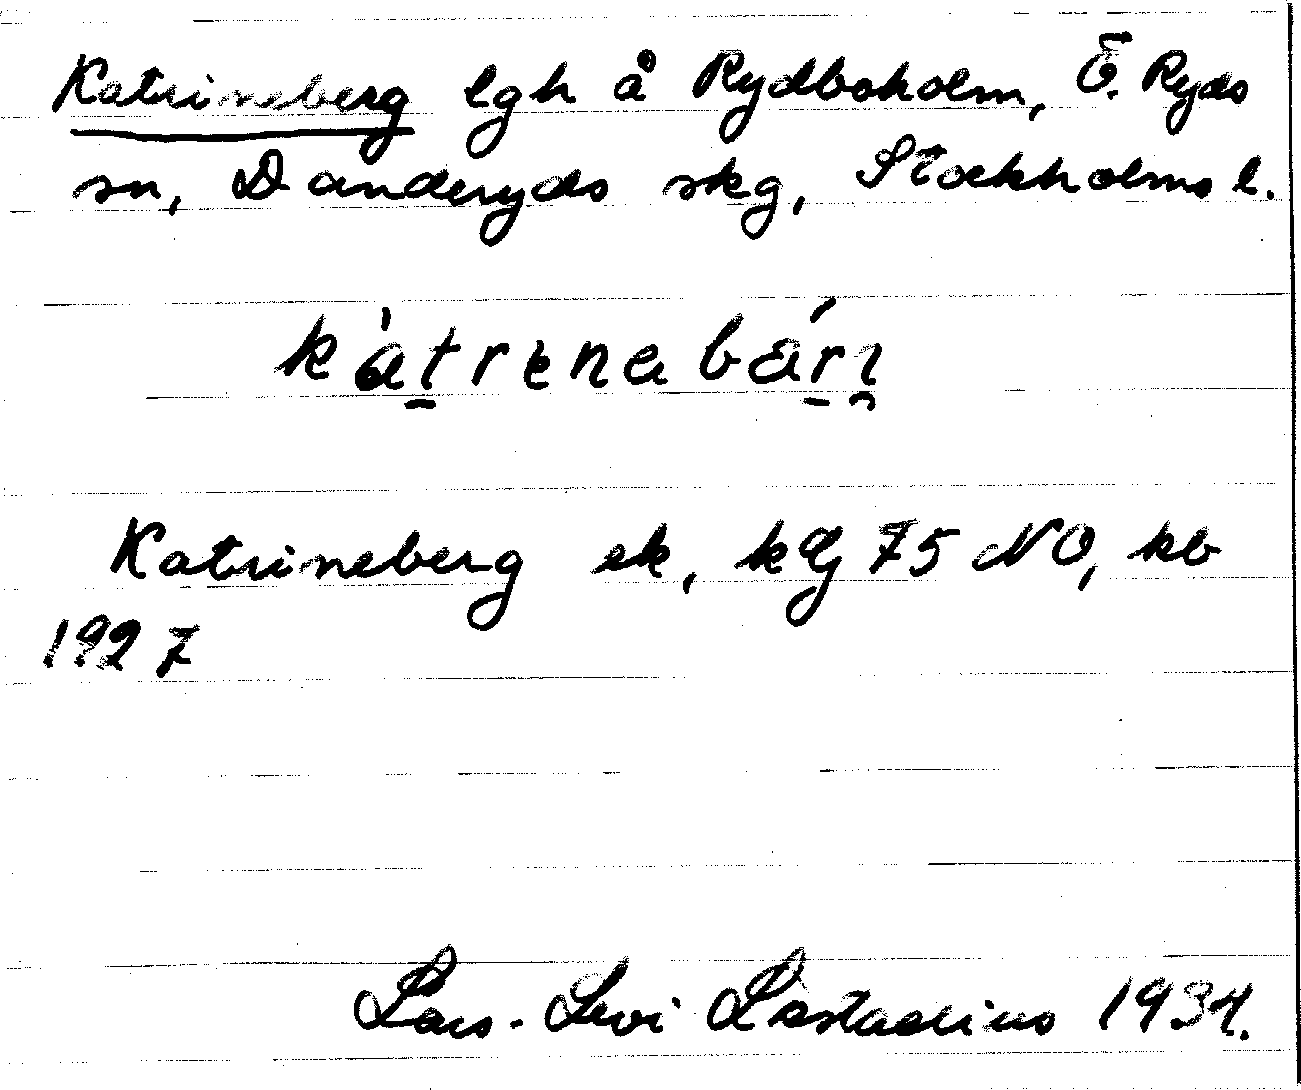 Katrineberg lgh å Rydboholm, Ö. Ryds
sn, Danderyds skg, Stockholms l.
kàtrenabárı
Katrineberg ek, kg 75 NO, kb
1927
Lars-Levi Læstadius 1934.